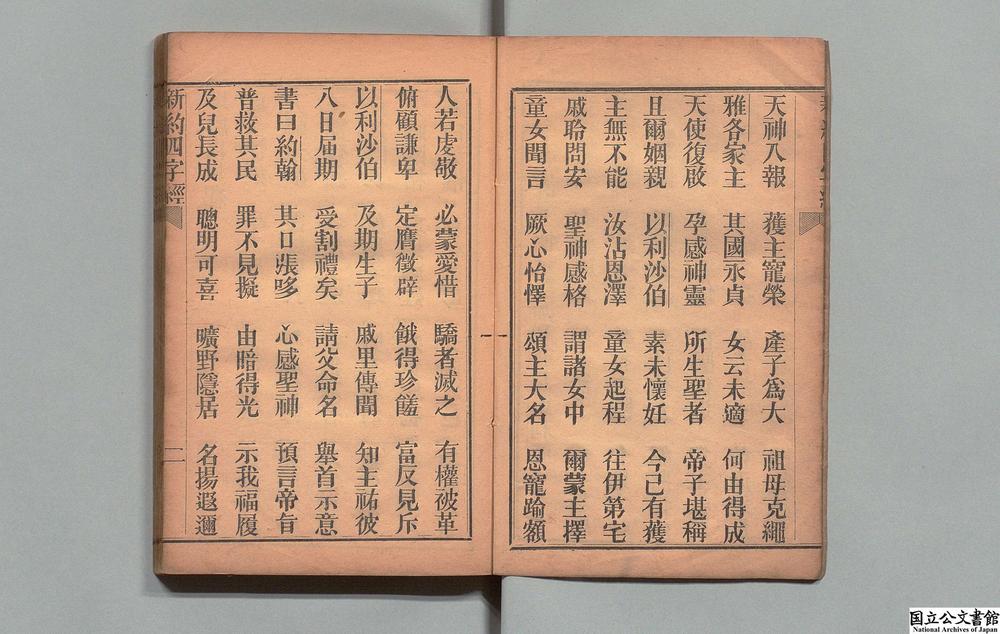 天神入報 獲主寵榮 產子爲大 祖母克繩
雅各家主 其國永貞 女云未適 何由得成
天使復啟 孕感神靈 所生聖者 帝子堪稱
且爾姻親 以利沙伯 素未懷妊 今已有獲
主無不能 汝沾恩澤 童女起程 往伊第宅
戚聆問安 聖神感格 謂諸女中 爾蒙主擇
童女聞言 厥心怡懌 頌主大名 恩寵踰額
人若虔敬 必蒙愛惜 驕者滅之 有權被革
俯顧謙卑 定膺徵辟 餓得珍饈 富反見斥
以利沙伯 及期生子 戚里傳聞 知主祐彼
八日届期 受割禮矣 請父命名 舉首示意
書曰約翰 其口張哆 心感聖神 預言帝旨
普救其民 罪不見擬 由暗得光 示我福履
及兒長成 聰明可喜 曠野隱居 名揚遐邇
新約四字經
二
国立公文書館
National Archives of Japan